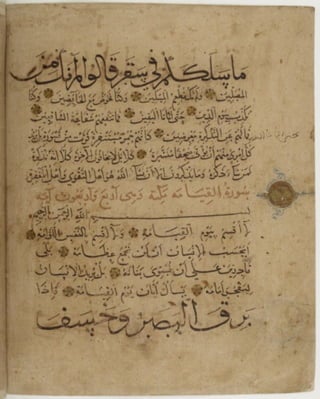 ما سلككم في سقر قالوا لم نك من
المصلين ولم نك نطعم المسكين وكنا نخوض مع الخائضين وكنا
نكذب بيوم الدين حتى اتانا اليقين فما تنفعهم شفاعة الشافعين
فما لهم عن التذكرة معرضين كانهم حمر مستنفرة فرت من قسورة بل يريد
كل امرئ منهم ان يؤتى صحفا منشرة كلا بل لا يخافون الاخرة كلا انه تذكرة
فمن شاء ذكره وما يذكرون الا ان يشاء الله هو اهل التقوى واهل المغفرة
سورة القيامة مكية وهي
بسم الله الرحمن الرحيم
لا اقسم بيوم القيامة ولا اقسم بالنفس اللوامة
ايحسب الانسان ان لن نجمع عظامه بلى
قادرين على ان نسوي بنانه بل يريد الانسان
ليفجر امامه يسال ايان يوم القيامة فاذا
برق البصر وخسف